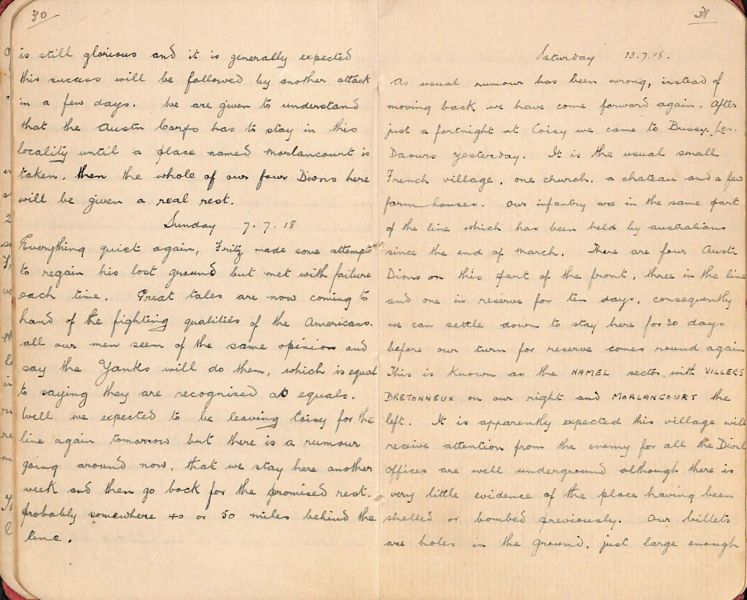 30
is still glorious and it is generally expected
this success will be followed by another attack
in a few days. We are given to understand
that the Austn Corps has to stay in this
locality until a place named Morlancourt is
taken, then the whole of our four Divns here
will be given a real rest.
Sunday 7.7.18
Everything quiet again, Fritz made some attempts
to regain his lost ground but met with failure
each time. Great tales are now coming to
hand of the fighting qualities of the Americans.
all our men seem of the same opinion and
say the Yanks will do them, which is equal
to saying they are recognised as equals.
Well we expected to be leaving Coisy for the
line again tomorrow but there is a rumour
going around now, that we stay here another
week and then go back for the promised rest.
probably somewhere 40 or 50 miles behind the
line.
31
Saturday 13.7.18.
As usual rumour has been wrong, instead of
moving back we have come forward again. After
just a fortnight at Coisy we came to Bussy-les-
Daours yesterday. It is the usual small
French village, one church, a chateau and a few
farm houses. Our infantry are in the same part
of the line which has been held by australians
since the end of March. There are four Austn
Divns on this part of the front, three in the line
and one is reserve for ten days, consequently
we can settle down to stay here for 30 days
before our turn for reserve comes round again
This is known as the HAMEL sector, with VILLERS
BRETONNEUX on our right and MORLANCOURT the
left. It is apparently expected this village will
receive attention from the enemy for all the Divnl
offices are well underground although there is
very little evidence of the place having been
shelled or bombed previously. Our billets
are holes in the ground, just large enough